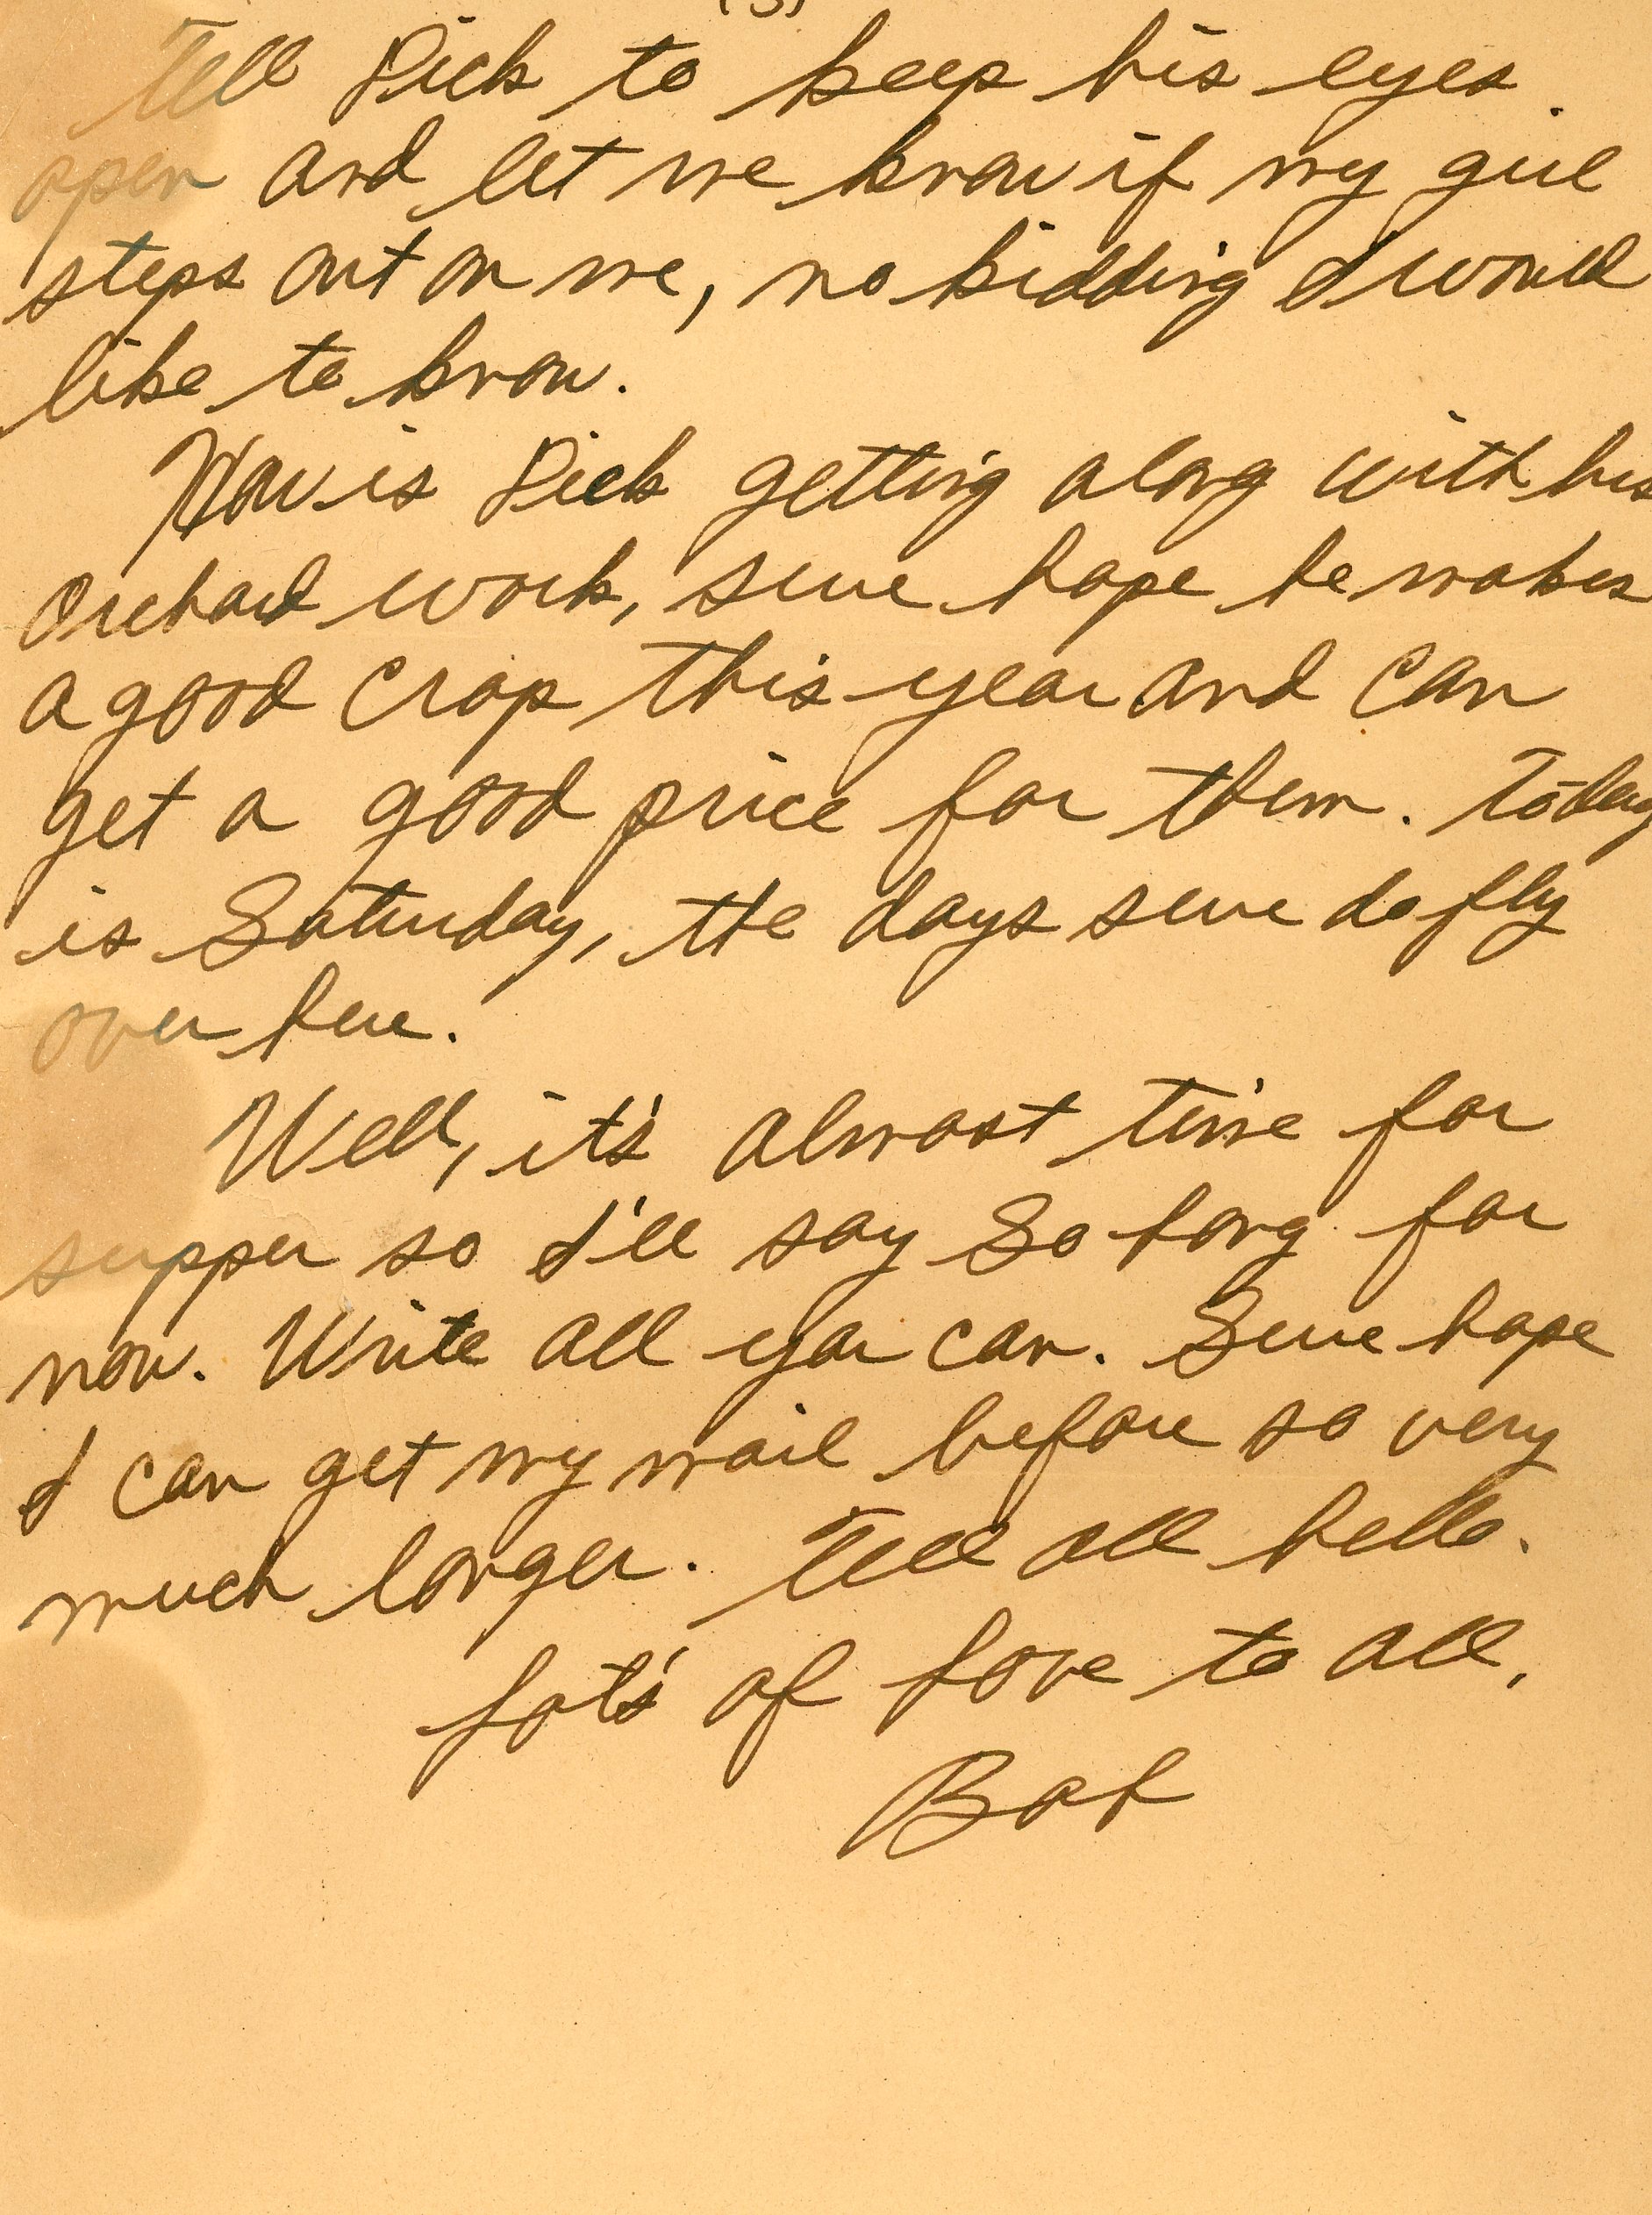 (3)
Tell Dick to keep his eyes
open and let me know if my girl
steps out on me, no kidding I would
like to know.
How is Dick getting along with his
Orchard work, sure hope he makes
a good Crop this year and can
get a good price for them. Today
is Saturday, the days sure do fly
over here.
Well, it's almost time for
supper so I'll say So Long for
now. Write all you can. Sure hope
I can get my mail before so very
much longer. Tell all hello.
Lot's of Love to all,
Bob